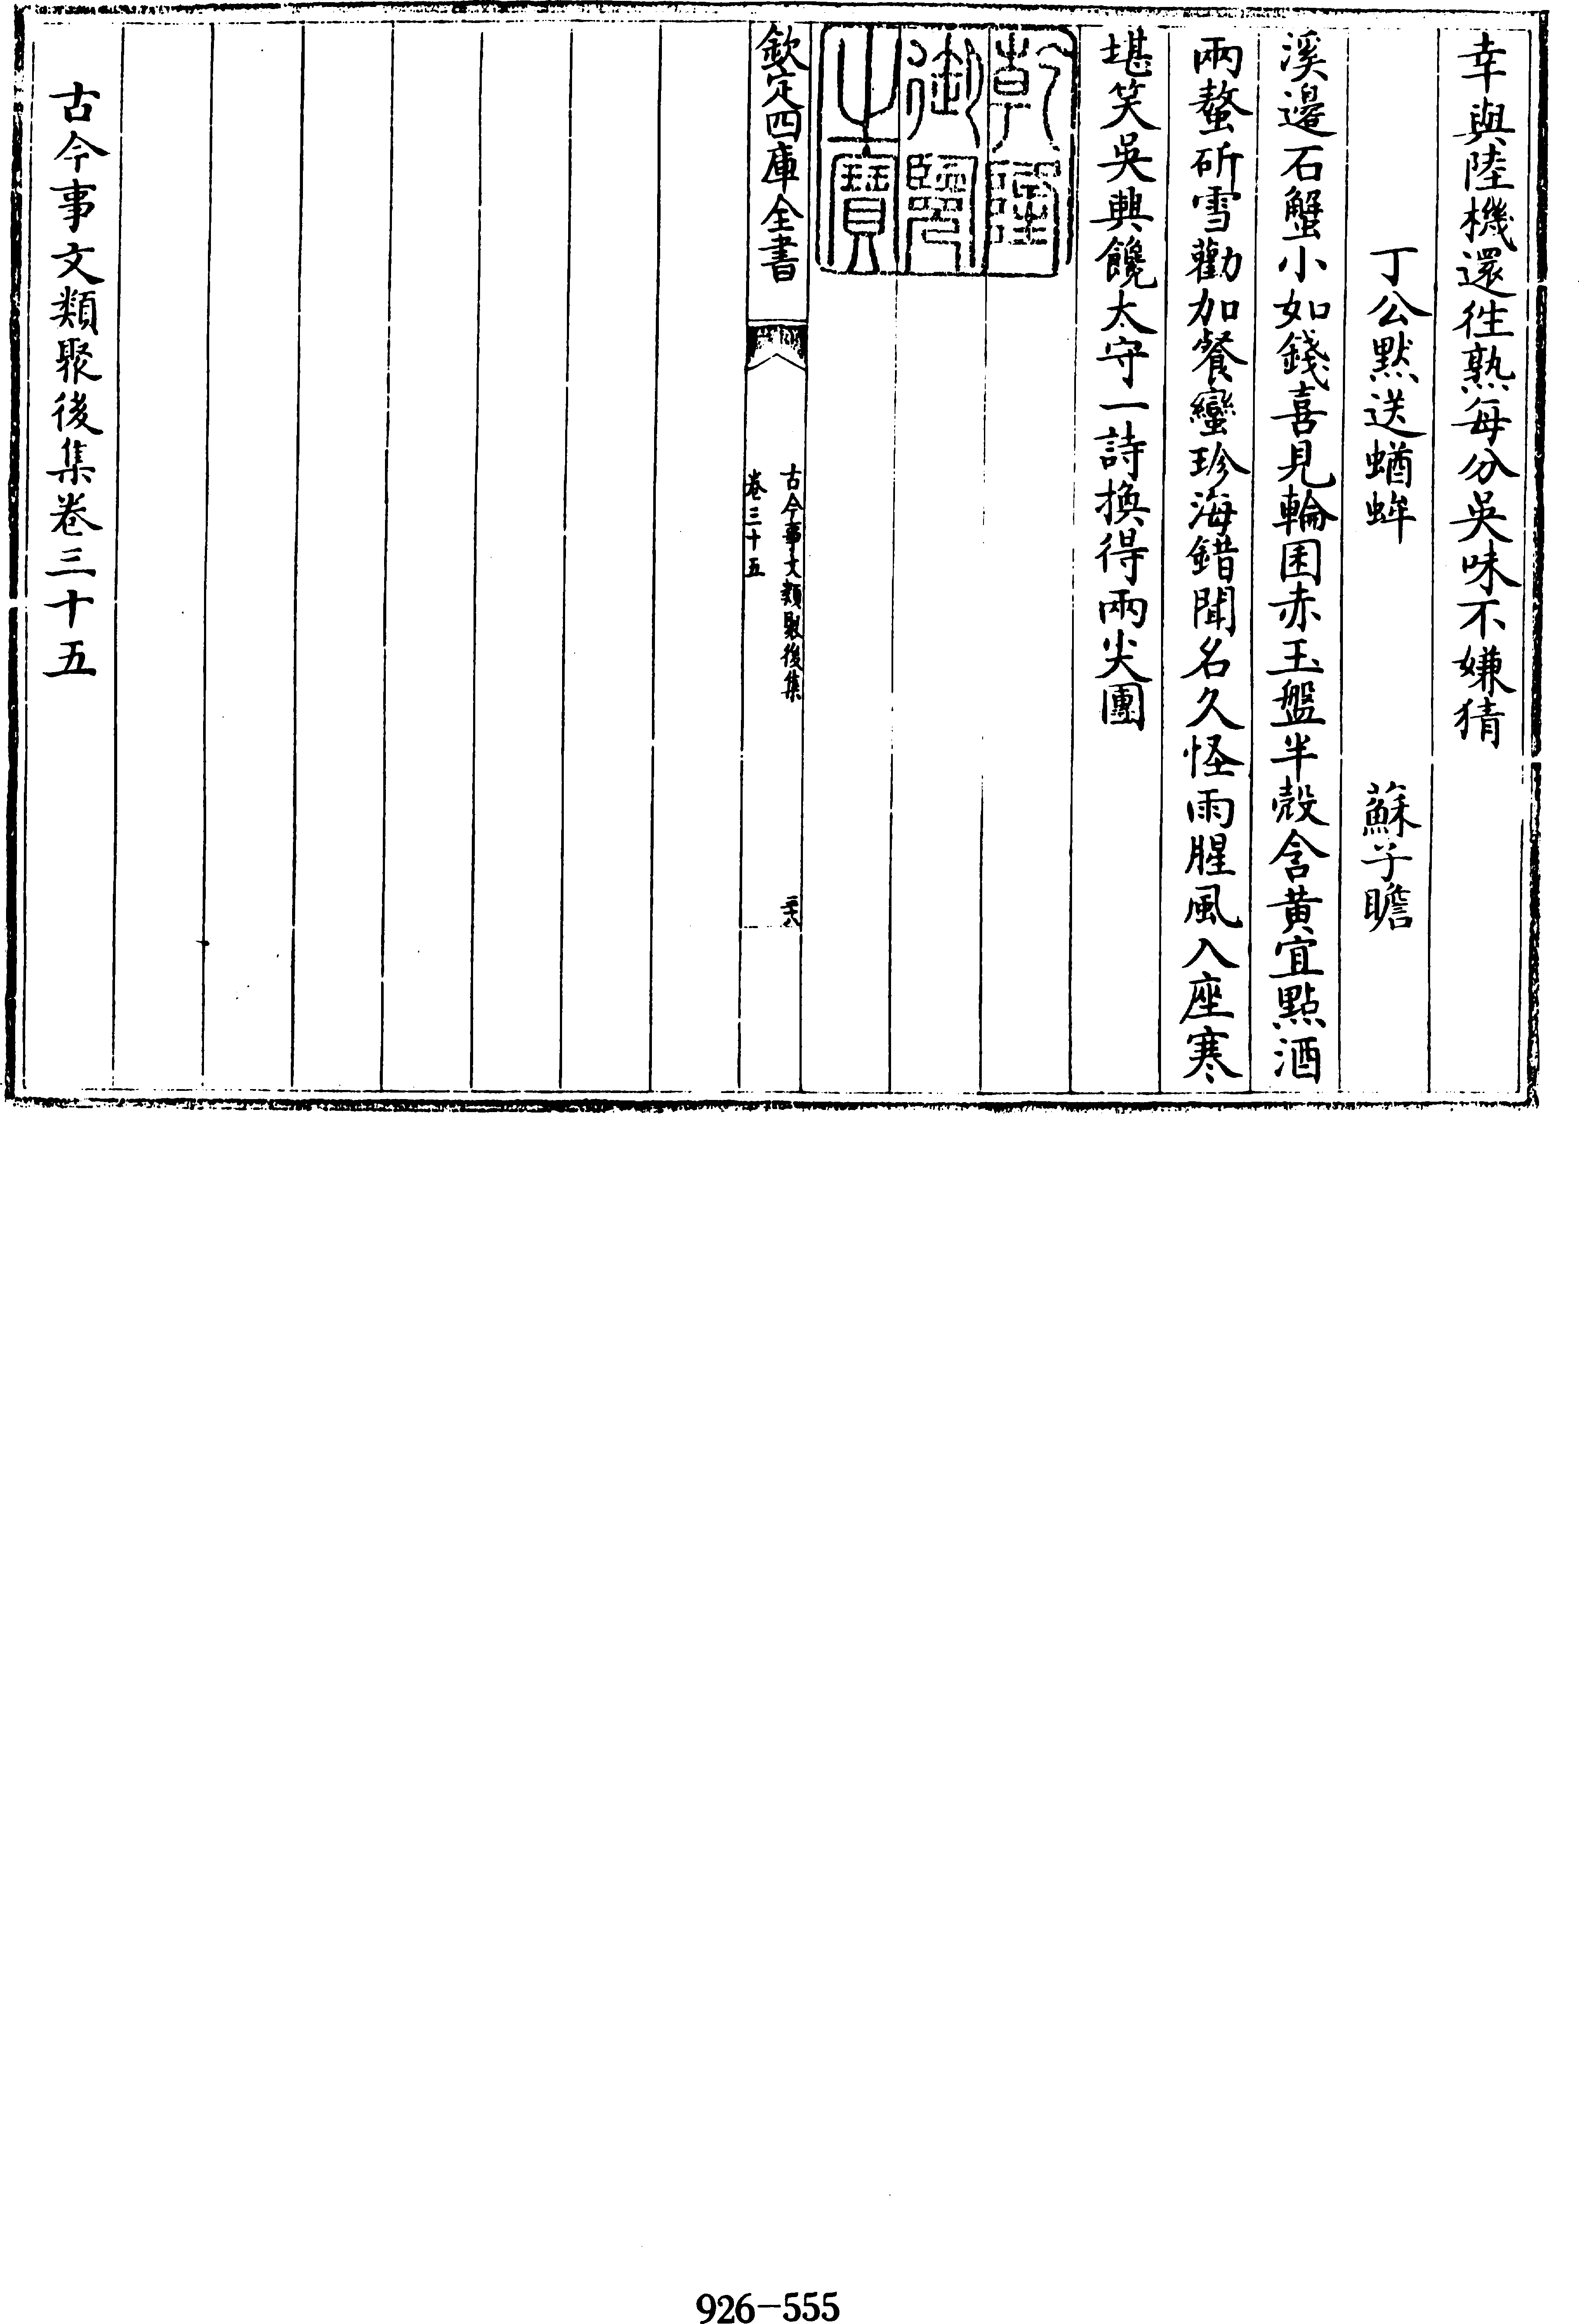 幸與陸機還徃熟每分吳味不嫌猜
丁公黙送蝤蛑 蘇子瞻
溪邉石蟹小如錢喜見輪囷赤玉盤半殻含黄宜點酒
兩螯斫雪勸加餐蠻珍海錯聞名久怪雨腥風入座寒
堪笑吳興饞太守一詩換得兩尖團
乾隆御覽之寶
欽定四庫全書
古今事文類聚後集
卷三十五
古今事文類聚後集卷三十五
926-555